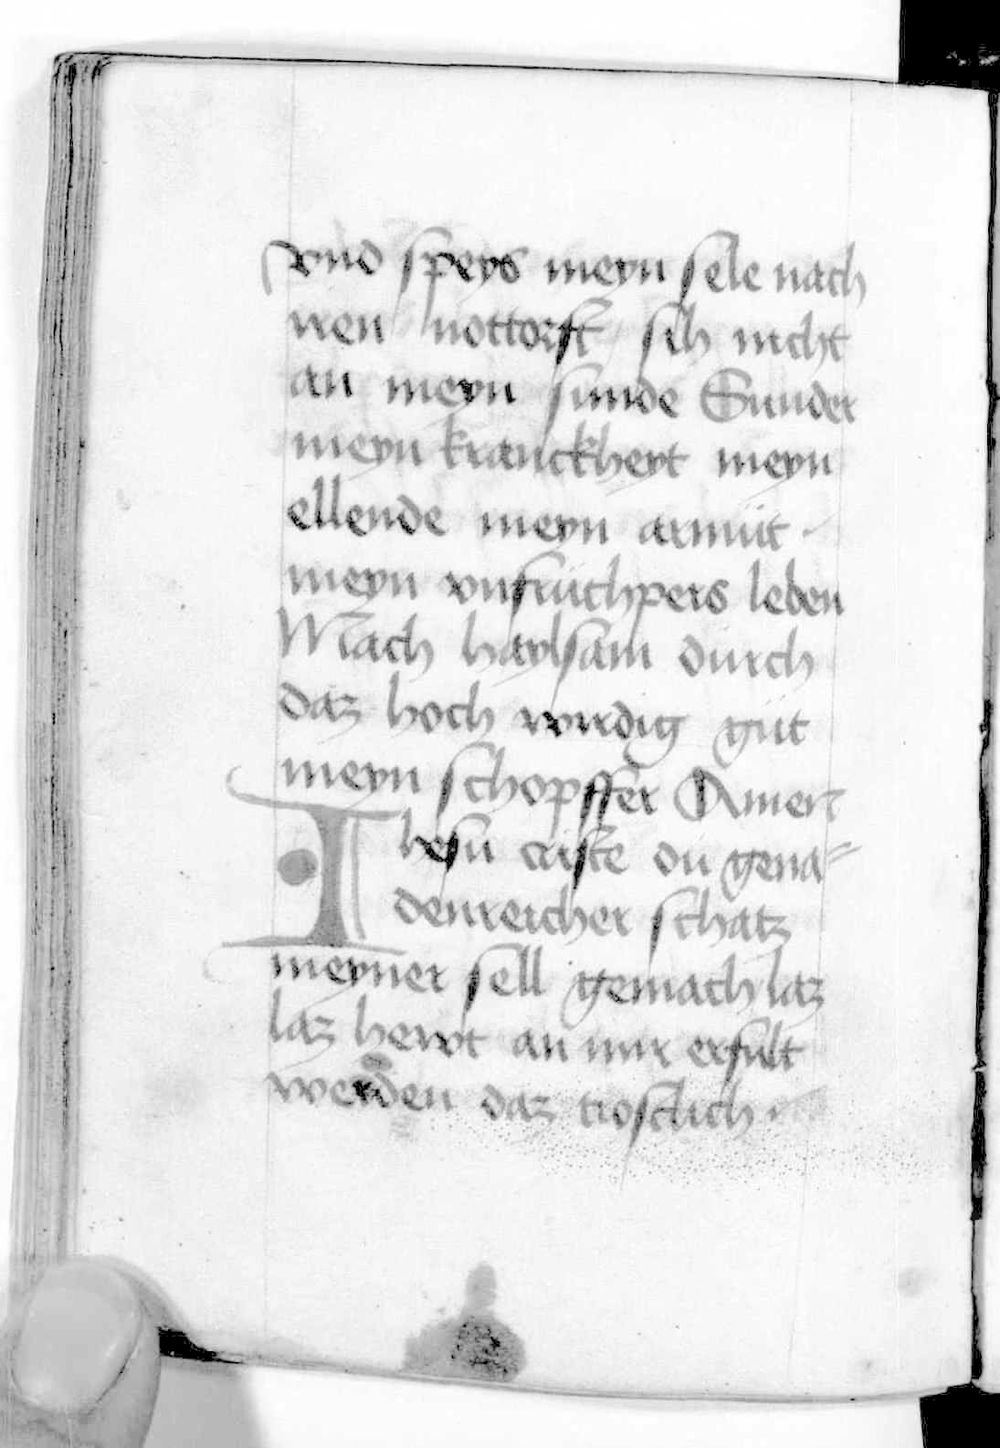 vnd speys meyn sele nach
iren nottorft / sih nicht
an meyn sunde Sunder
meyn kranckheyt meyn
ellende meyn armüt ·
meyn vnfrüchpers leben
Mach haylsam dürch
daz hoch wirdig güt
meyn schopffer Amen
Ihesü criste dü gena=
denreicher schatz
meyner sell gemach laz
laz hewt an mir erfult
werden daz trostlich ·